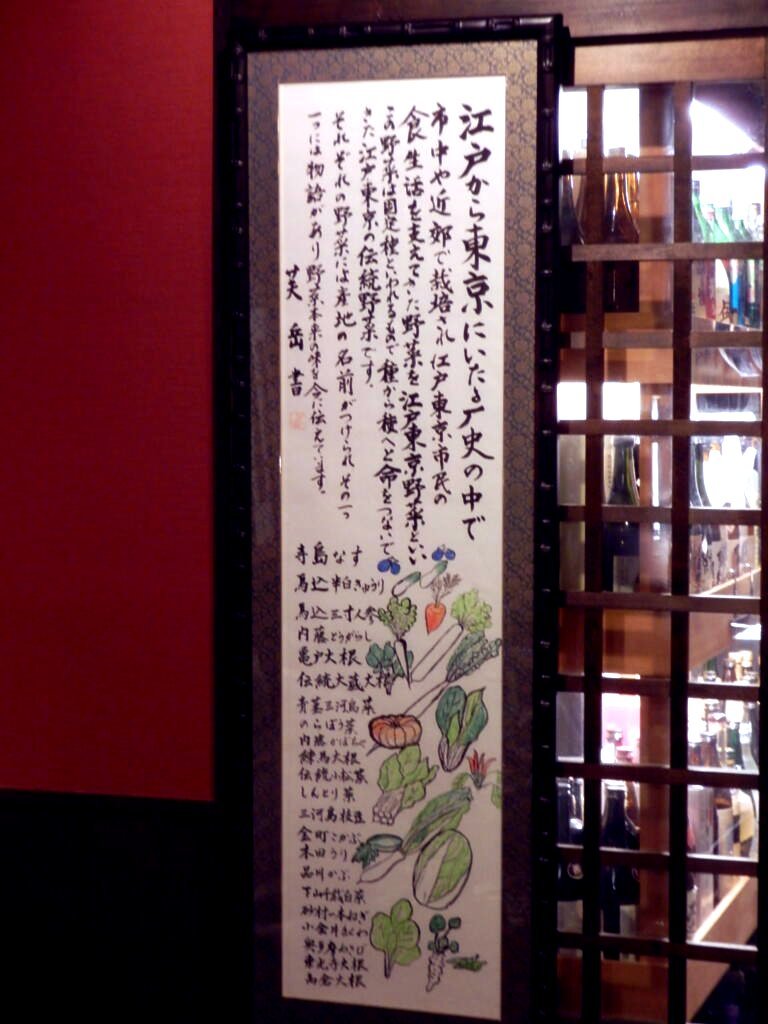 江戸から東京にいたる歴史の中で
市中や近郊で栽培され江戸東京市民の
食生活を支えてきた野菜を江戸東京野菜といい
この野菜は固定種といわれるもので種から種へと命をつないで
きた江戸東京の伝統野菜です。
それぞれの野菜には産地の名前がつけられ、その一つ
一つには物語があり野菜本来の味を今に伝えています。
笑岳書
寺島なす
馬込半白きゅうり
馬込三寸人参
内藤とうがらし
亀戸大根
伝統大蔵大根
青茎三河島菜
のらぼう菜
内藤かぼちゃ
練馬大根
伝統小松菜
しんとり菜
三河島枝豆
金町こかぶ
本田うり
品川かぶ
下山千歳白菜
砂村一本ねぎ
小金井まくわ
奥多摩わさび
東光寺大根
高倉大根